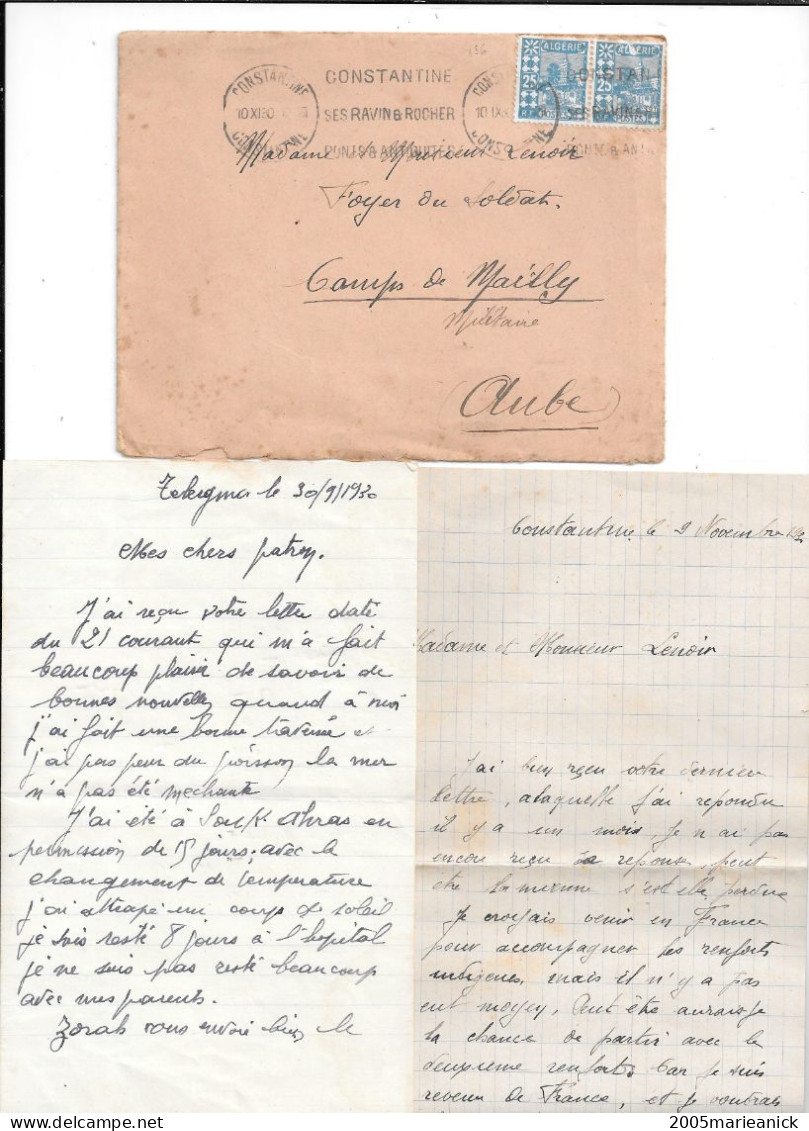 136
CONSTANTINE
10 XI 30
CONSTANTINE
CONSTANTINE
SES RAVIN & ROCHER
PONTS & ANTIQUITES
CONSTANTINE
10 IX
CONSTANTINE
ALGERIE
25
POSTES
ALGERIE
25
POSTES
CONSTAN
SES RAVIN & R
PONTS & ANT
Madame & Monsieur Lenoir
Foyer du Soldat.
Camps de Maïlly
Militaire
(Aube)
le 30/9/1930
Mes chers patron.
J'ai reçu votre lettre daté
du 21 courant qui m'a fait
beaucoup plaisir de savoir de
bonnes nouvelles quand à moi
j'ai fait une bonne et
j'ai pas peur du poisson la mer
n'a pas été mechante
J'ai été à Souk-Ahras en
permission de 15 jours. avec le
changement de température
j'ai attrapé un coups de soleil
je suis resté 8 jours à l'hopital
je ne suis pas resté beaucoup
avec mes parents.
Zorah vous envoie bien le
Constantine le 9 Novembre 1930
Madame et Monsieur Lenoir
J'ai bien reçu votre dernier
lettre, alaquelle j'ai repondu
il y a un mois, Je n'ai pas
encore reçu la reponse, peut
être la mienne s'est elle perdue
Je croyais venir en France
pour accompagner les renforts
indigenes, mais il n'y a pas
eut moyen, Peut être aurais-je
la chance de partir avec le
deuxieme renforts. Car je suis
revenu de France, et je voudrais
2005marieanick